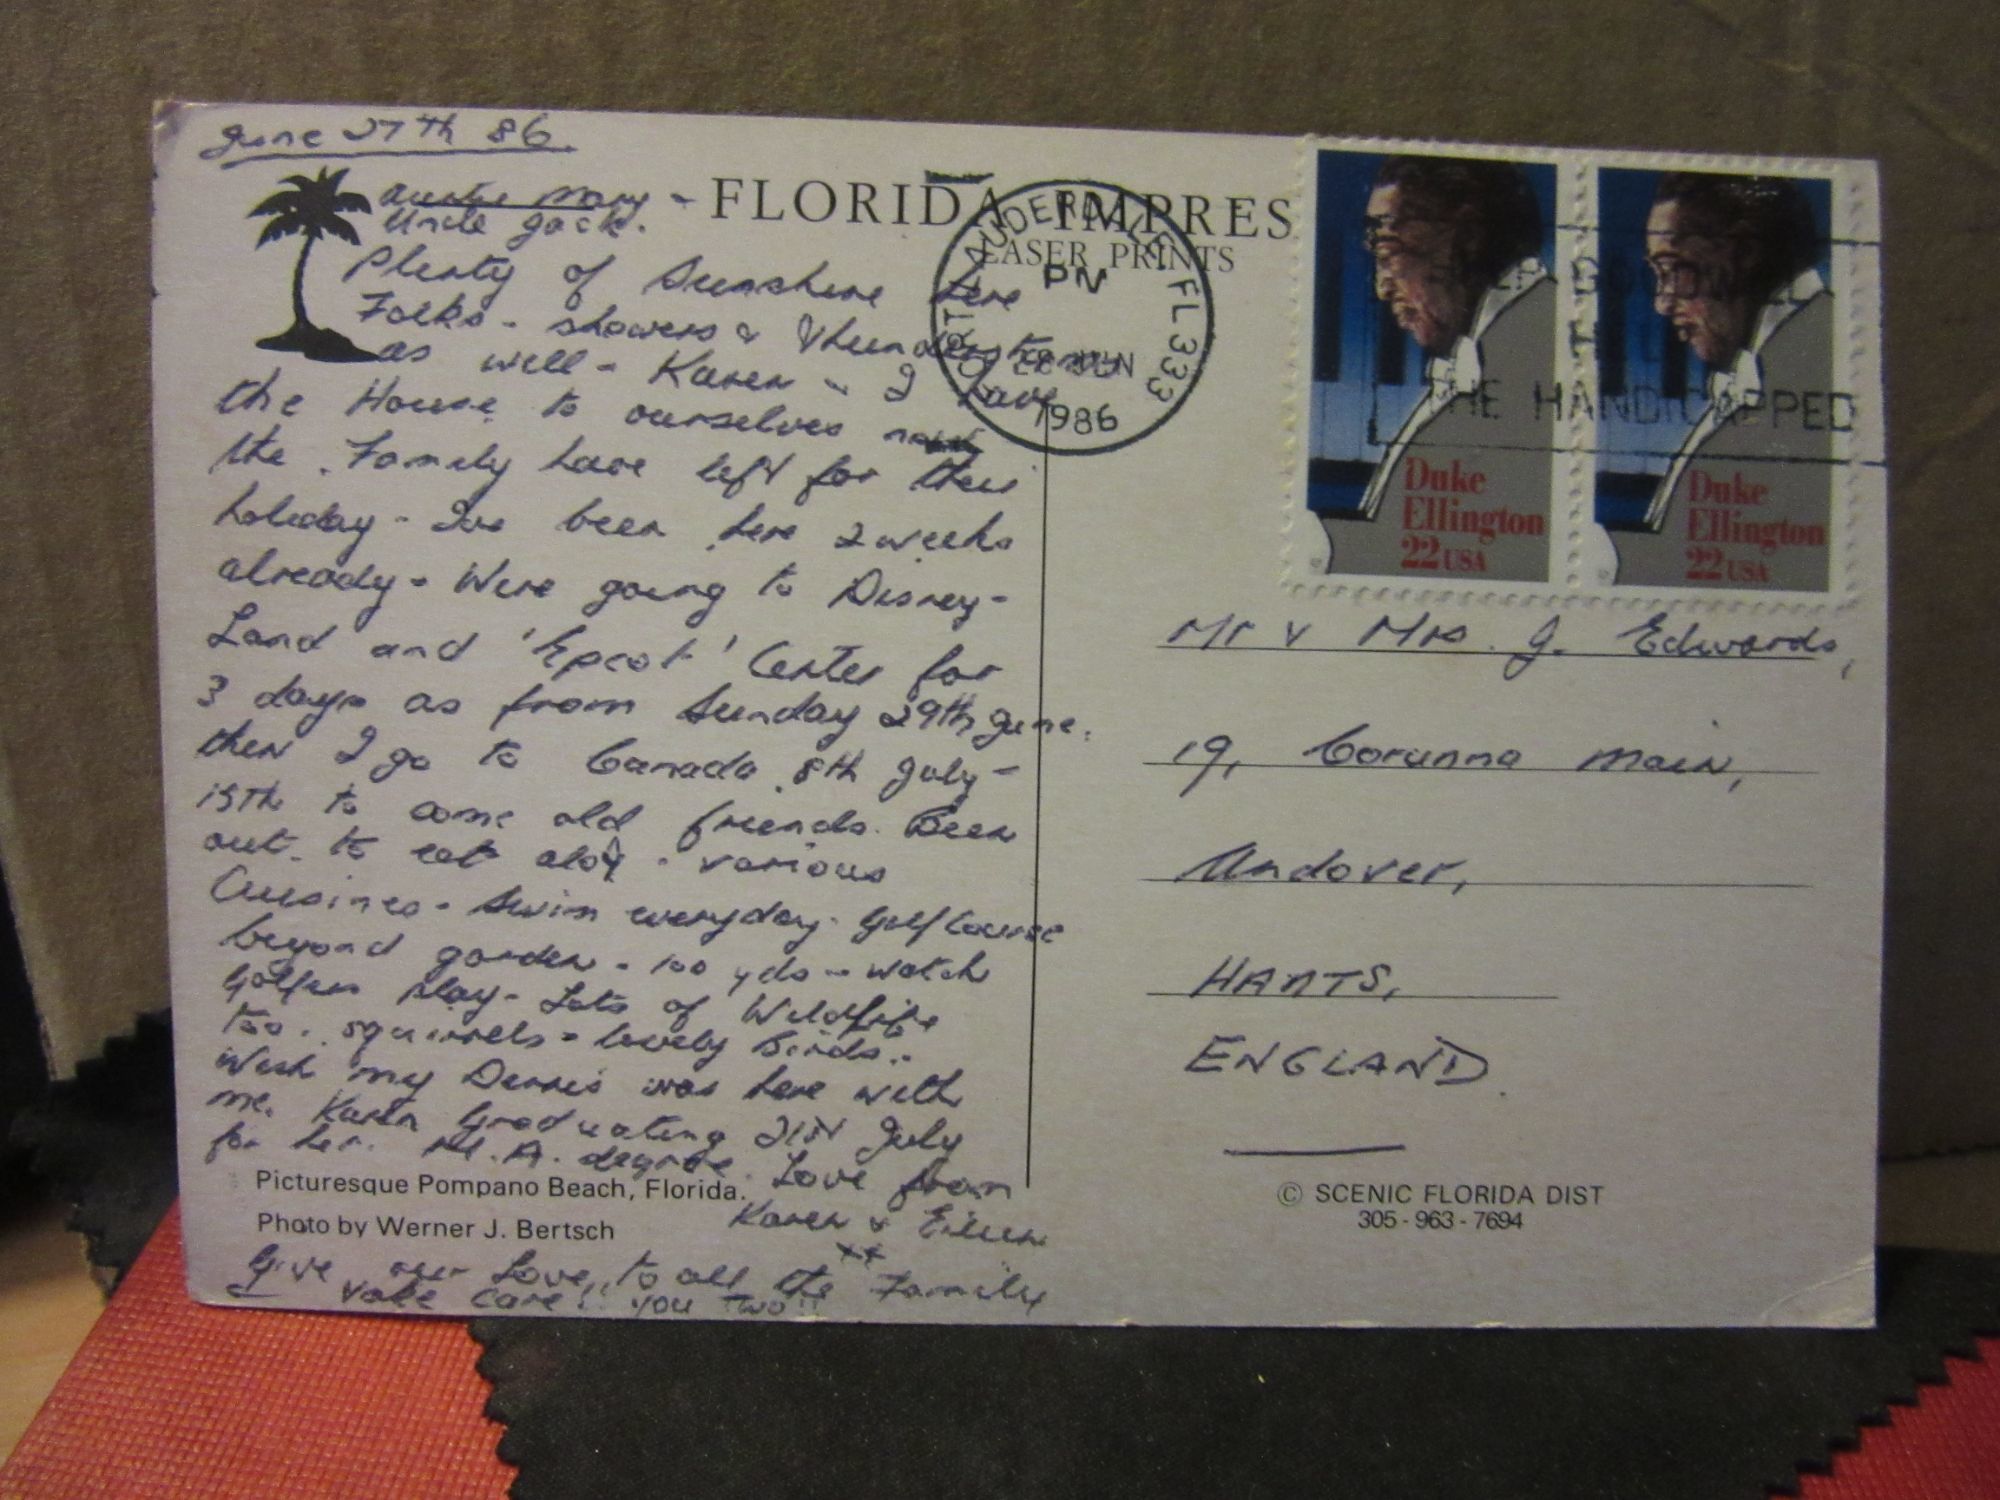 June 27th 86.
FLORIDA IMPRES
LASER PRINTS
Auntie Mary -
Uncle Jack.
Plenty of Sunshine here
Folks - showers & thunderstorms
as well - Karen & I have
the House to ourselves now
the Family have left for their
holiday - Ive been here 2 weeks
already - Were going to Disney-
Land and 'Epcot' Center for
3 days as from Sunday 29th June.
then I go to Canada 8th July -
15th to some old friends. Been
out to eat alot - various
Cuisines - Swim everyday - Golf Course
beyond garden - 100 yds - watch
Golfers play - Lots of Wildlife
too. squirrels - lovely Birds..
Wish my Dennis was here with
me. Karen Graduating 21st July
for her M.A. degree. Love from
Karen & Eileen
xx
Give our Love to all the Family
take care!! you two!!
Picturesque Pompano Beach, Florida.
Photo by Werner J. Bertsch
FORT LAUDERDALE FL 333
PM
28 JUN
1986
THE HANDICAPPED
Duke
Ellington
22 USA
Duke
Ellington
22 USA
Mr & Mrs. J. Edwards,
19, Corunna Main,
Andover,
HANTS,
ENGLAND.
© SCENIC FLORIDA DIST
305-963-7694